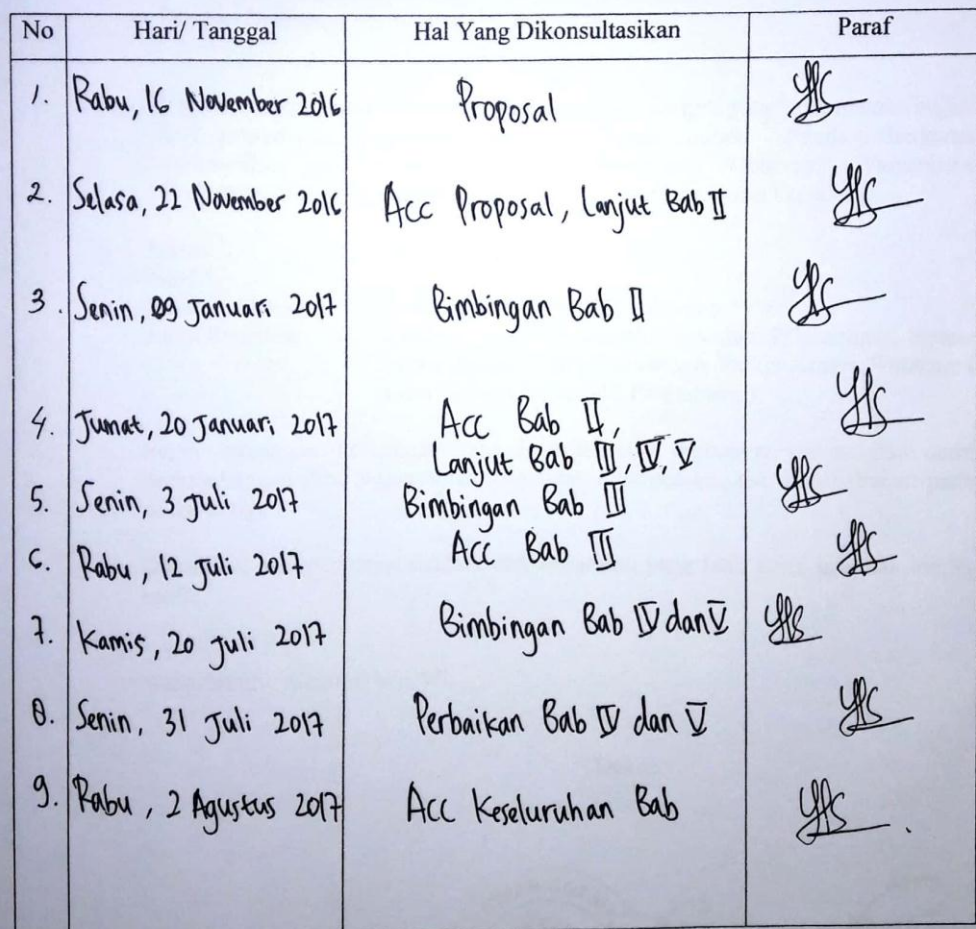 No Hari/ Tanggal Hal Yang Dikonsultasikan Paraf
1. Rabu, 16 November 2016 Proposal
2. Selasa, 22 November 2016 Acc Proposal, Lanjut Bab II
3. Senin, 09 Januari 2017 Bimbingan Bab II
4. Jumat, 20 Januari 2017 Acc Bab II,
Lanjut Bab III, IV, V
5. Senin, 3 Juli 2017 Bimbingan Bab III
6. Rabu, 12 Juli 2017 Acc Bab III
7. Kamis, 20 Juli 2017 Bimbingan Bab IV dan V
8. Senin, 31 Juli 2017 Perbaikan Bab IV dan V
9. Rabu, 2 Agustus 2017 Acc Keseluruhan Bab